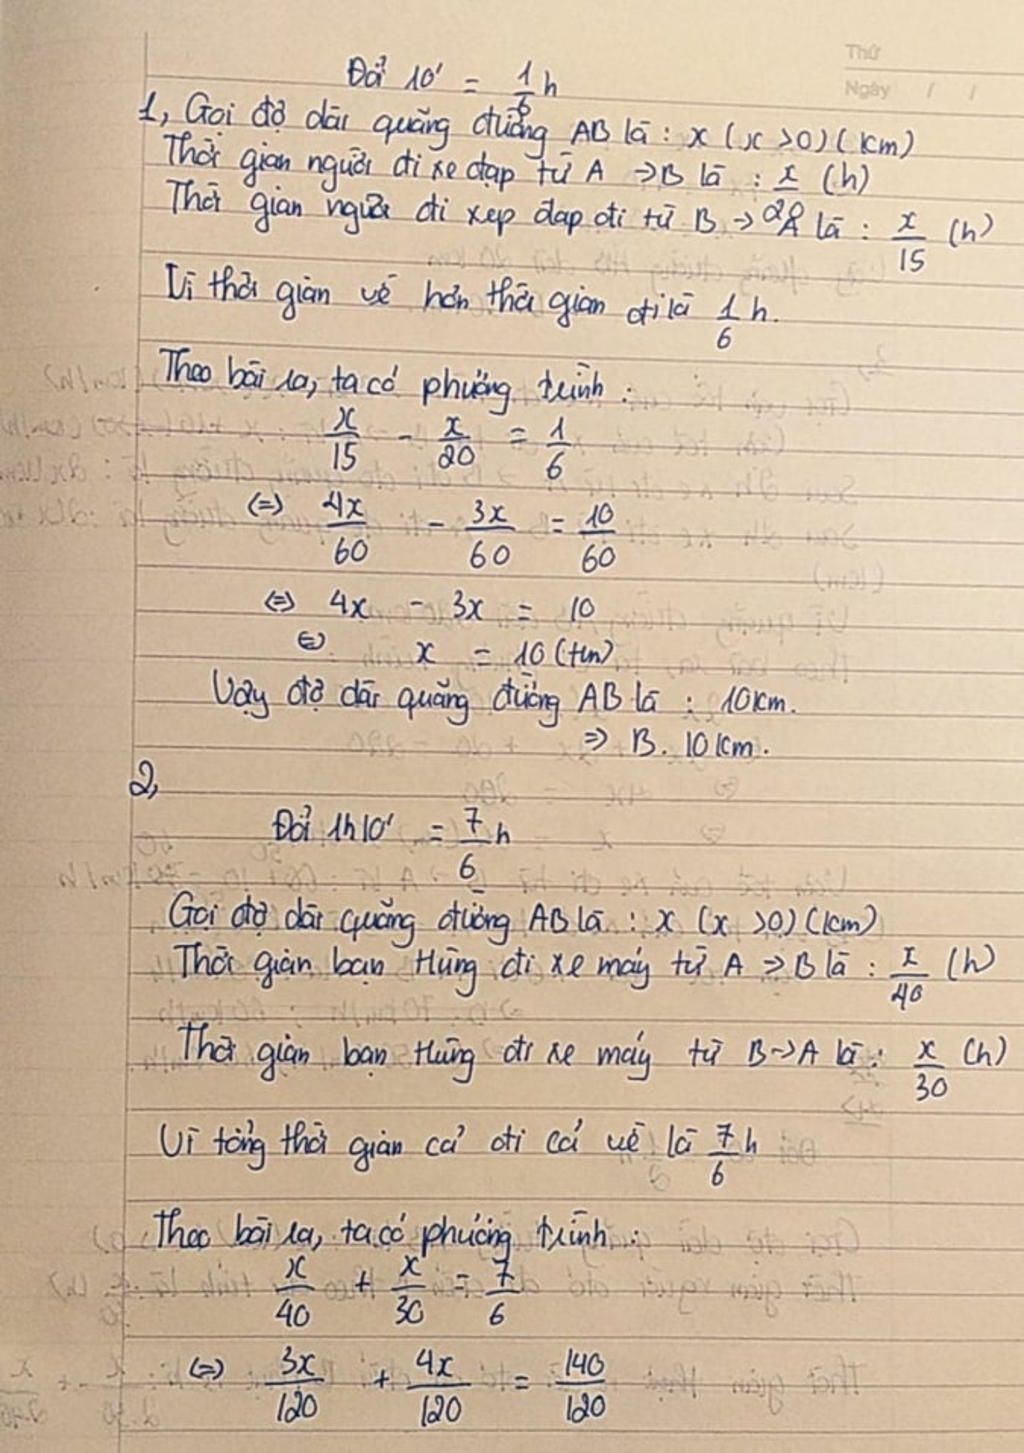 Thứ
Ngày / /
Đổi 10' = 1/6 h
1, Gọi độ dài quãng đường AB là : x (x >0) (km)
Thời gian người đi xe đạp từ A → B là : x/20 (h)
Thời gian người đi xep đạp đi từ B → A là : x/15 (h)
Vì thời gian về hơn thời gian đi là 1/6 h.
Theo bài ra, ta có phương trình :
x/15 - x/20 = 1/6
(=) 4x/60 - 3x/60 = 10/60
(=) 4x - 3x = 10
(=) x = 10 (t/m)
Vậy độ dài quãng đường AB là : 10km.
=> B. 10km.
2,
Đổi 1h10' = 7/6 h
Gọi độ dài quãng đường AB là : x (x >0) (km)
Thời gian bạn Hùng đi xe máy từ A → B là : x/40 (h)
Thời gian bạn Hùng đi xe máy từ B → A là : x/30 (h)
Vì tổng thời gian cả đi cả về là 7/6 h
Theo bài ra, ta có phương trình :
x/40 + x/30 = 7/6
(=) 3x/120 + 4x/120 = 140/120